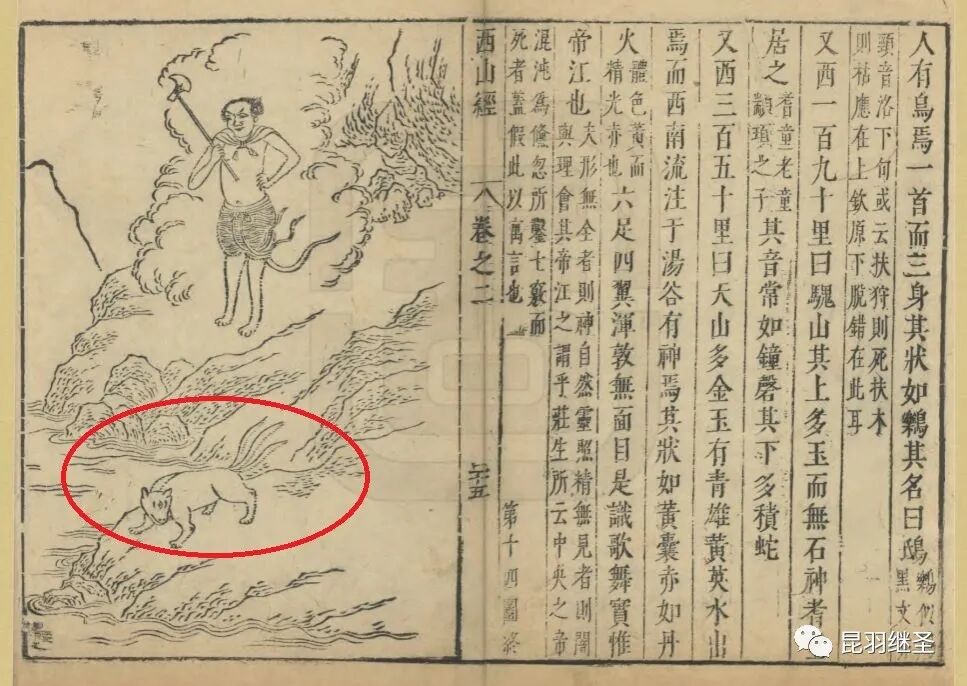 人有鳥焉一首而三身其狀如鶨其名曰鴟
鶨似
黑文
頸音洛下句或云扶狩則死扶木
則枯應在上欽原下脫錯在此耳
又西一百九十里曰騩山其上多玉而無石神耆
居之
耆童老童
顓頊之子
其音常如鐘磬其下多積蛇
又西三百五十里曰天山多金玉有青雄黃英水出
焉而西南流注于湯谷有神焉其狀如黃囊赤如丹
火
體色黃而
精光赤也
六足四翼渾敦無面目是識歌舞實惟
帝江也
夫形無全者則神自然靈照精無見者則闇
與理會其帝江之謂乎莊生所云中央之帝
混沌為儵忽所鑿七竅而
死者蓋假此以寓言也
第十四圖終
西山經
卷之二
昆羽继圣